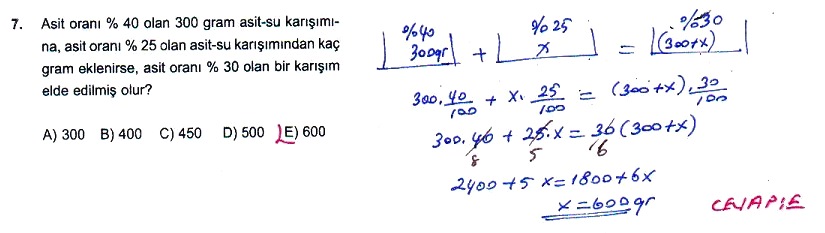 7. Asit oranı % 40 olan 300 gram asit-su karışımı-
na, asit oranı % 25 olan asit-su karışımından kaç
gram eklenirse, asit oranı % 30 olan bir karışım
elde edilmiş olur?
A) 300 B) 400 C) 450 D) 500 E) 600
%40 %25 %30
300gr + x = (300+x)
300. 40/100 + x. 25/100 = (300+x). 30/100
300. 40 + 25. x = 30 (300+x)
8 5 6
2400 + 5 x = 1800 + 6x
x = 600 gr
CEVAP: E